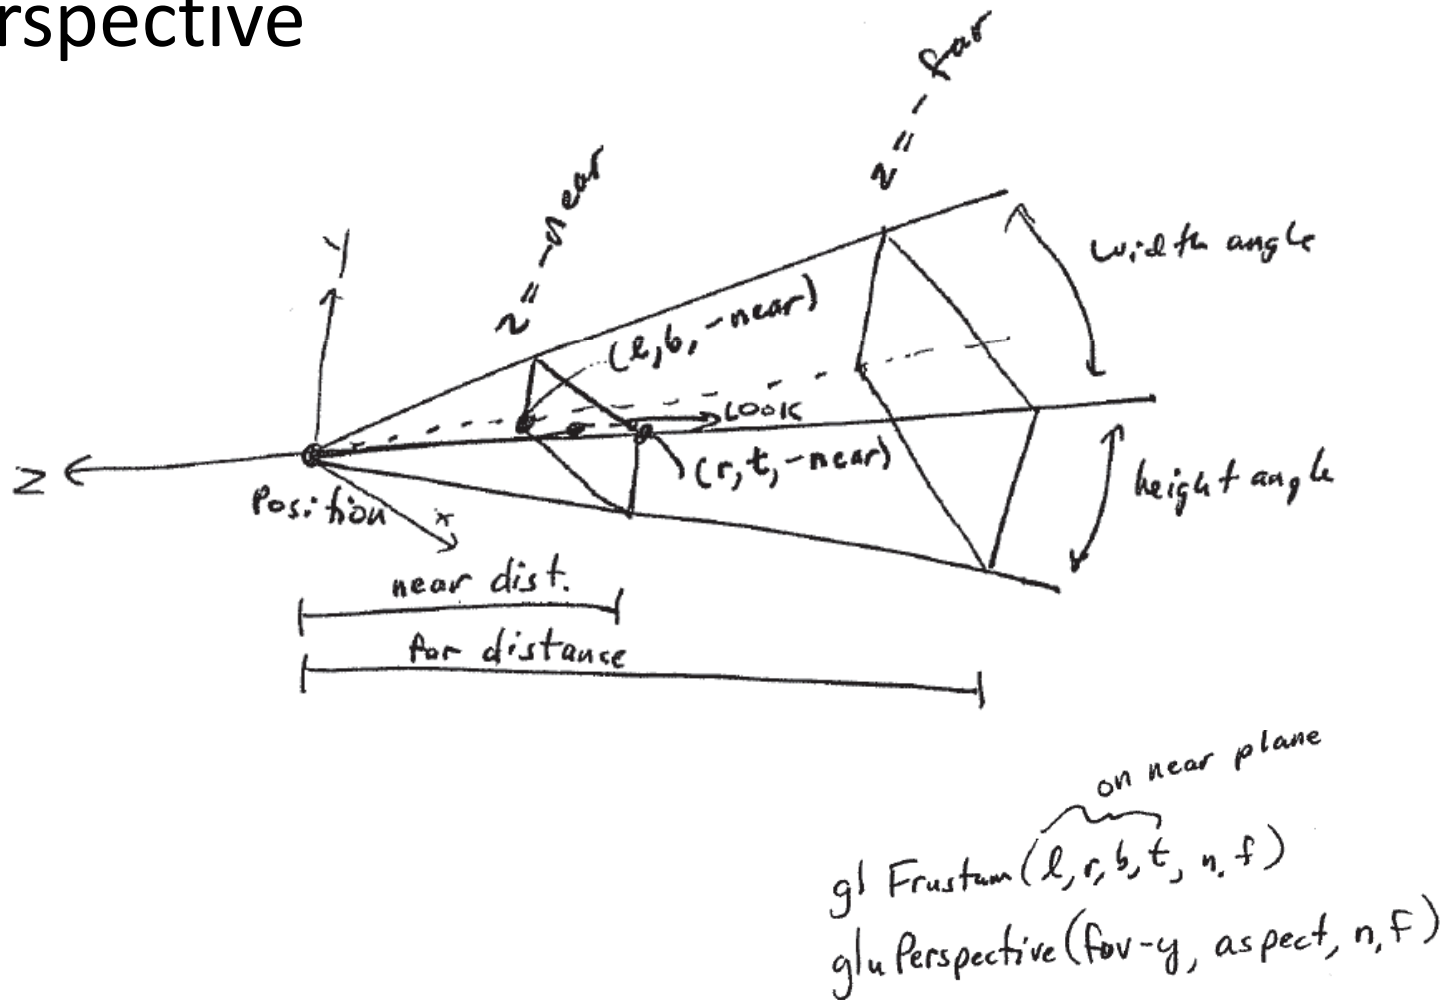 rspective
z = - far
z = - near
Y
width angle
(l, b, -near)
LOOK
(r, t, -near)
Z
Position
x
height angle
near dist.
far distance
on near plane
gl Frustum (l, r, b, t, n, f)
glu Perspective (fov-y, aspect, n, F)